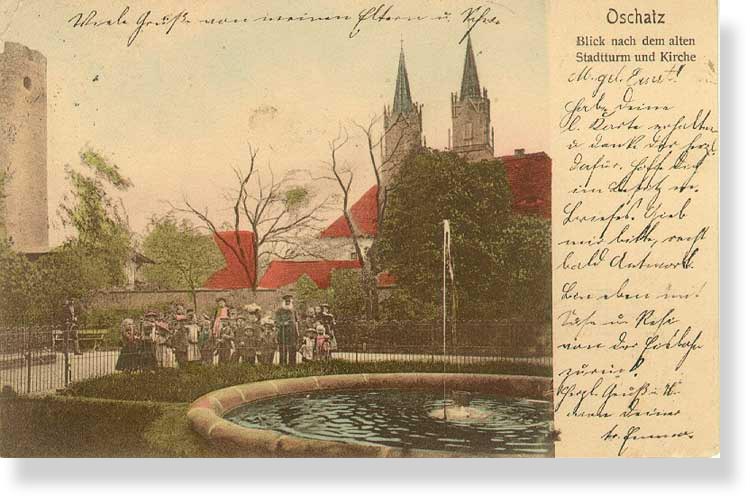 Viele Grüße von meinen Eltern u.
Oschatz
Blick nach dem alten
Stadtturm und Kirche
M. gel. Ernst!
Habe Deine
l. Karte erhalten
u dank Dir herzl
dafür. Hoffe Dich
im Besitz m.
Briefes. Gieb
mir bitte, recht
bald Antwort.
Bin eben mit
u.
von der Eisbahn
zurück.
Herzl. Gruß u.
Deine
tr. Emma.